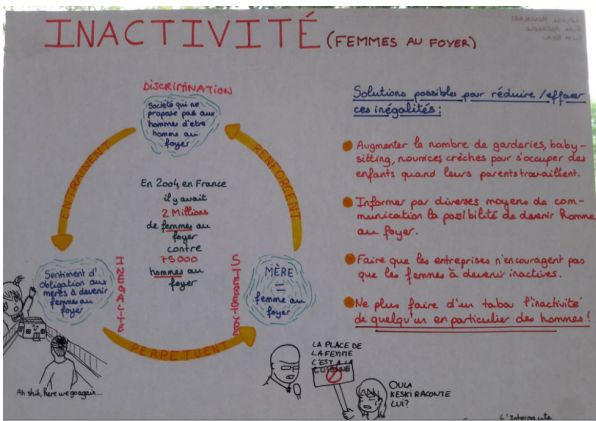 INACTIVITÉ (FEMMES AU FOYER)
DISCRIMINATION
Société qui ne
propose pas aux
hommes d'être
homme au
foyer
ENTRAINENT
RENFORCENT
En 2004 en France
il y avait
2 Millions
de femmes au
foyer
contre
75000
hommes au
foyer
INEGALITÉ
Sentiment d'
obligation aux
mères à devenir
femmes au
foyer
MÈRE
=
femme au
foyer
PERPETUENT
Ah shit, here we go again...
Solutions possibles pour réduire/effacer
ces inégalités:
Augmenter le nombre de garderies, baby-
sitting, nounices crèches pour s'occuper des
enfants quand leurs parents travaillent.
Informer par diverses moyens de com-
munication la possibilité de devenir homme
au foyer.
Faire que les entreprises n'encouragent pas
que les femmes à devenir inactives.
Ne plus faire d'un tabou l'inactivité
de quelqu'un en particulier des hommes!
LA PLACE DE
LA FEMME
C'EST A LA
CUISINE
OULA
KESKI RACONTE
LUI?